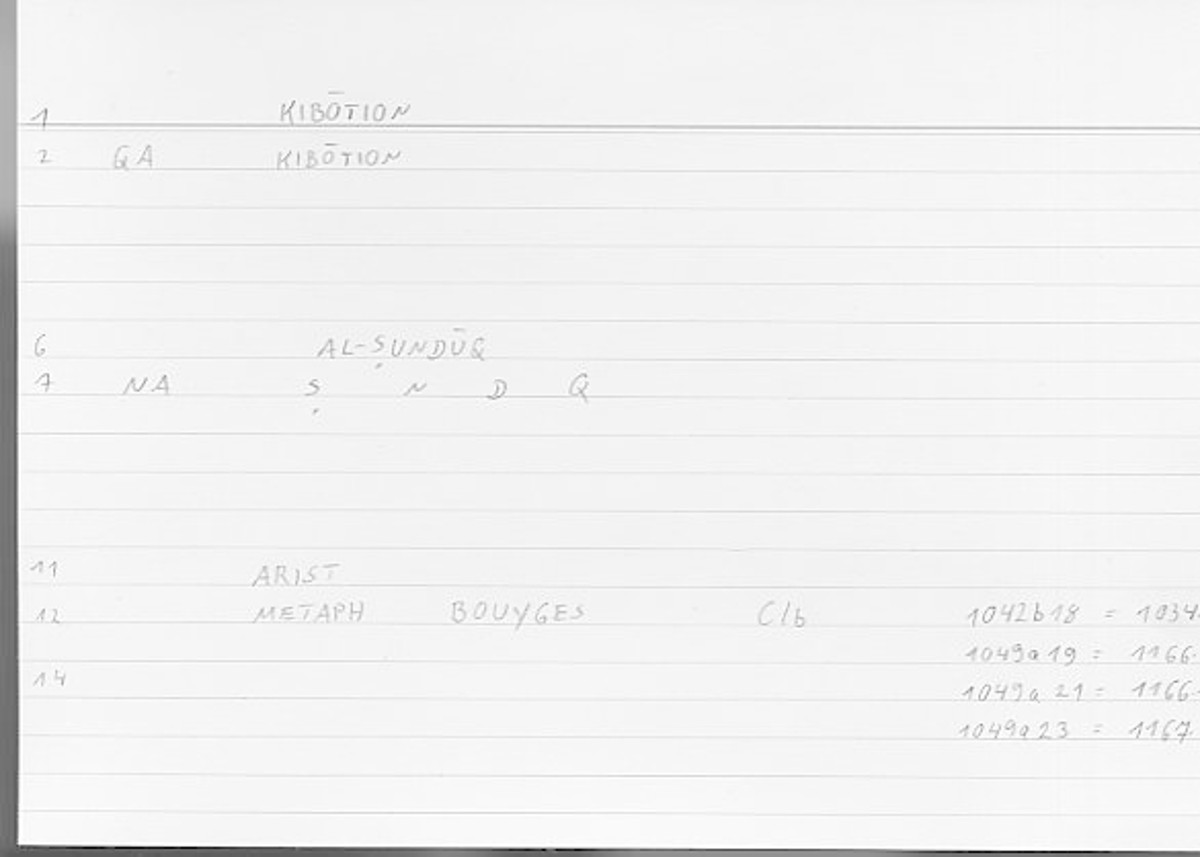 1 KIBŌTION
2 GA KIBŌTION
6 AL-ṢUNDŪQ
7 NA Ṣ N D Q
11 ARIST
12 METAPH BOUYGES C/b 1042b18 = 1034.
1049a19 = 1166.
14 1049a21 = 1166.
1049a23 = 1167.